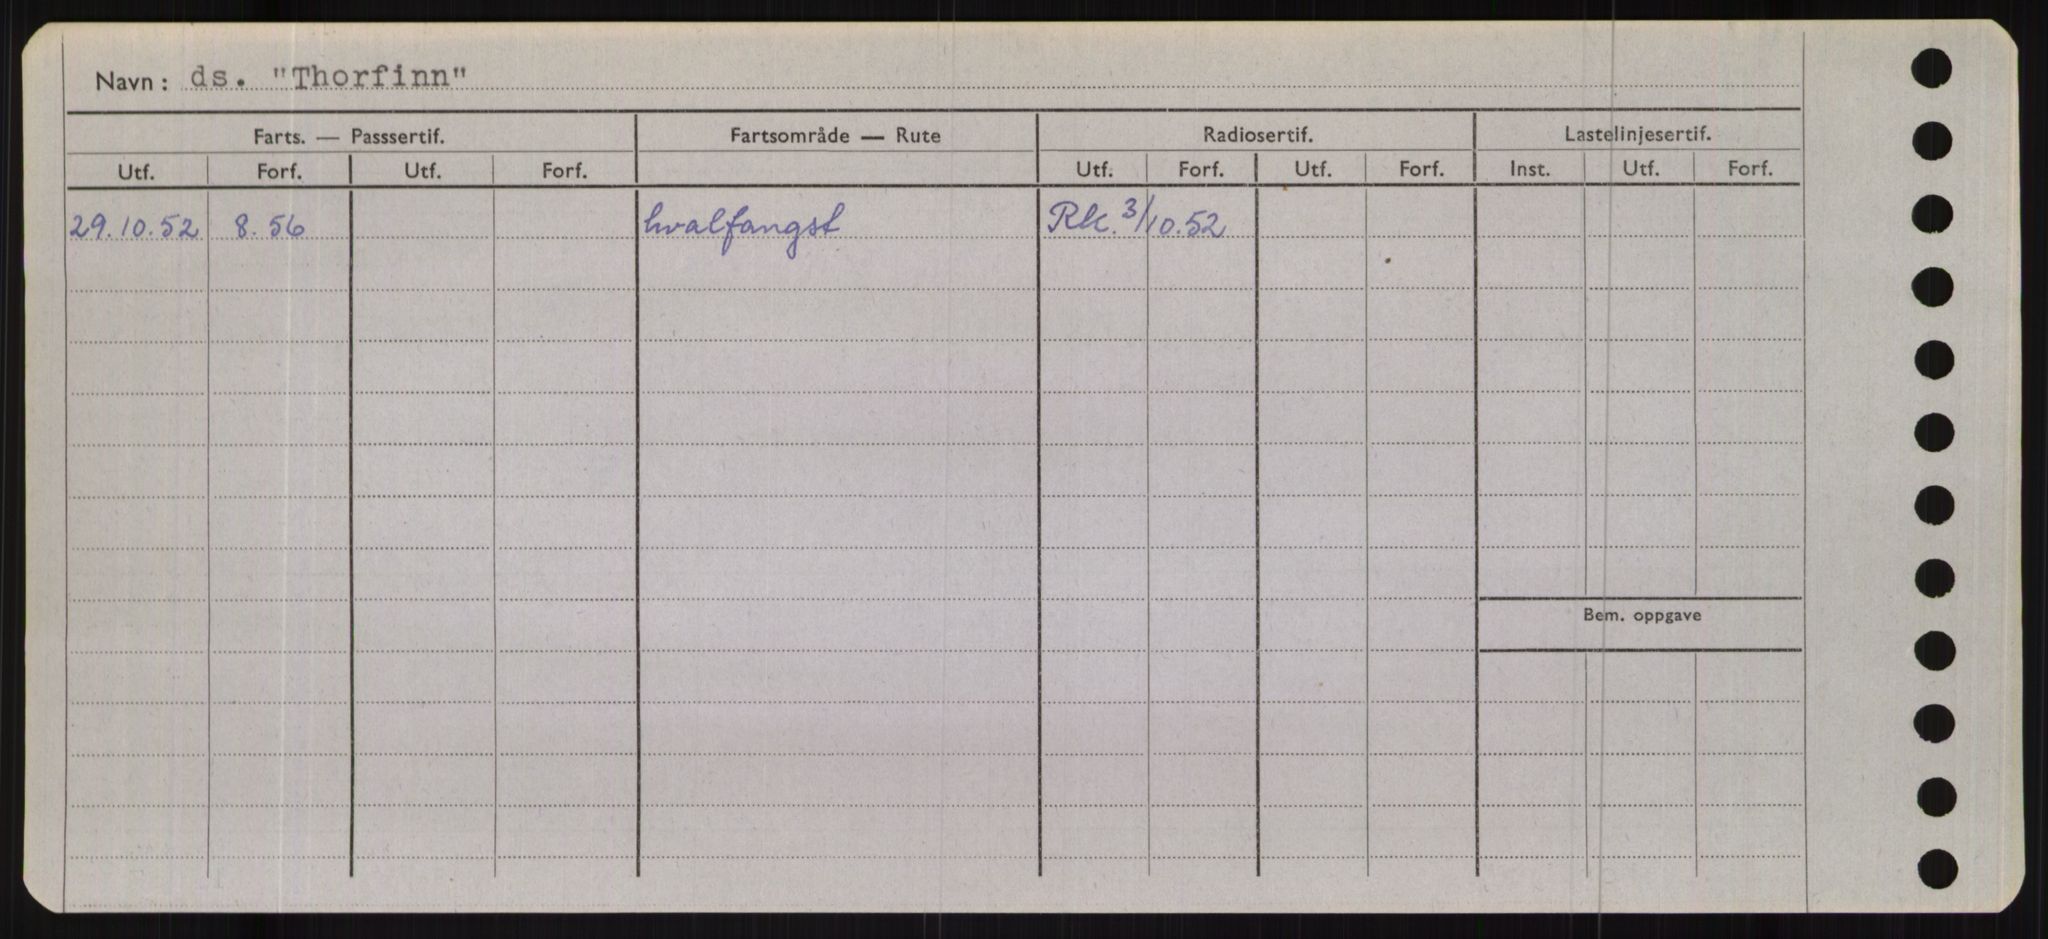 Navn: ds. "Thorfinn"
Farts. — Passsertif. Fartsområde — Rute Radiosertif. Lastelinjesertif.
Utf. Forf. Utf. Forf. Utf. Forf. Utf. Forf. Inst. Utf. Forf.
29.10.52 8.56 hvalfangst Rk. 3/10.52
Bem. oppgave